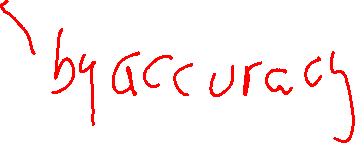 by accuracy